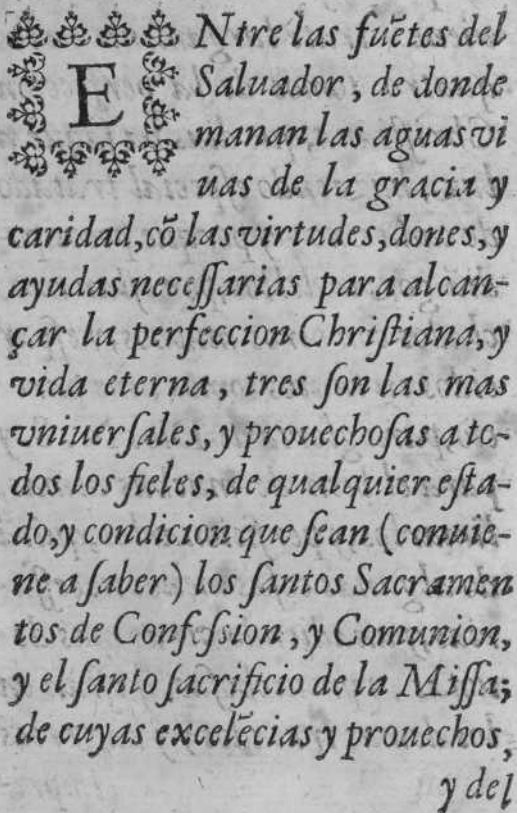 ENtre las fuẽtes del
Saluador, de donde
manan las aguas vi
uas de la gracia y
caridad, cõ las virtudes, dones, y
ayudas neceſſarias para alcan-
çar la perfeccion Chriſtiana, y
vida eterna, tres ſon las mas
vniuerſales, y prouechoſas a to-
dos los fieles, de qualquier eſta-
do, y condicion que ſean (conuie-
ne a ſaber) los ſantos Sacramen
tos de Confeſsion, y Comunion,
y el ſanto ſacrificio de la Miſſa;
de cuyas excelẽcias y prouechos,
y del